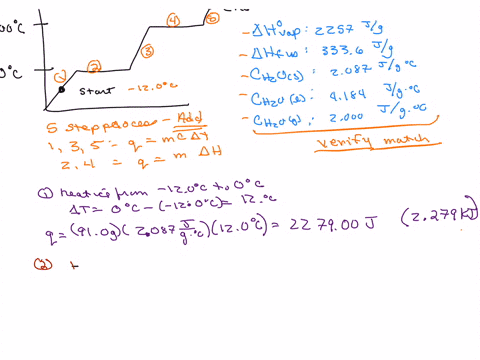 00°C ④ ⑤
0°C ① ② ③
start -12.0°C
5 step process - Add
1, 3, 5: - q = m C ΔT
2, 4 = q = m ΔH
- ΔH°vap: 2257 J/g
- ΔHfus: 333.6 J/g
- CH2O(s): 2.087 J/g·°C
- CH2O(l): 4.184 J/g·°C
- CH2O(g): 2.000 J/g·°C
verify match
① heat ice from -12.0°C to 0°C
ΔT = 0°C - (-12.0°C) = 12.°C
q = (91.0g)(2.087 J/g·°C)(12.0°C) = 2279.00 J (2.279 kJ)
②